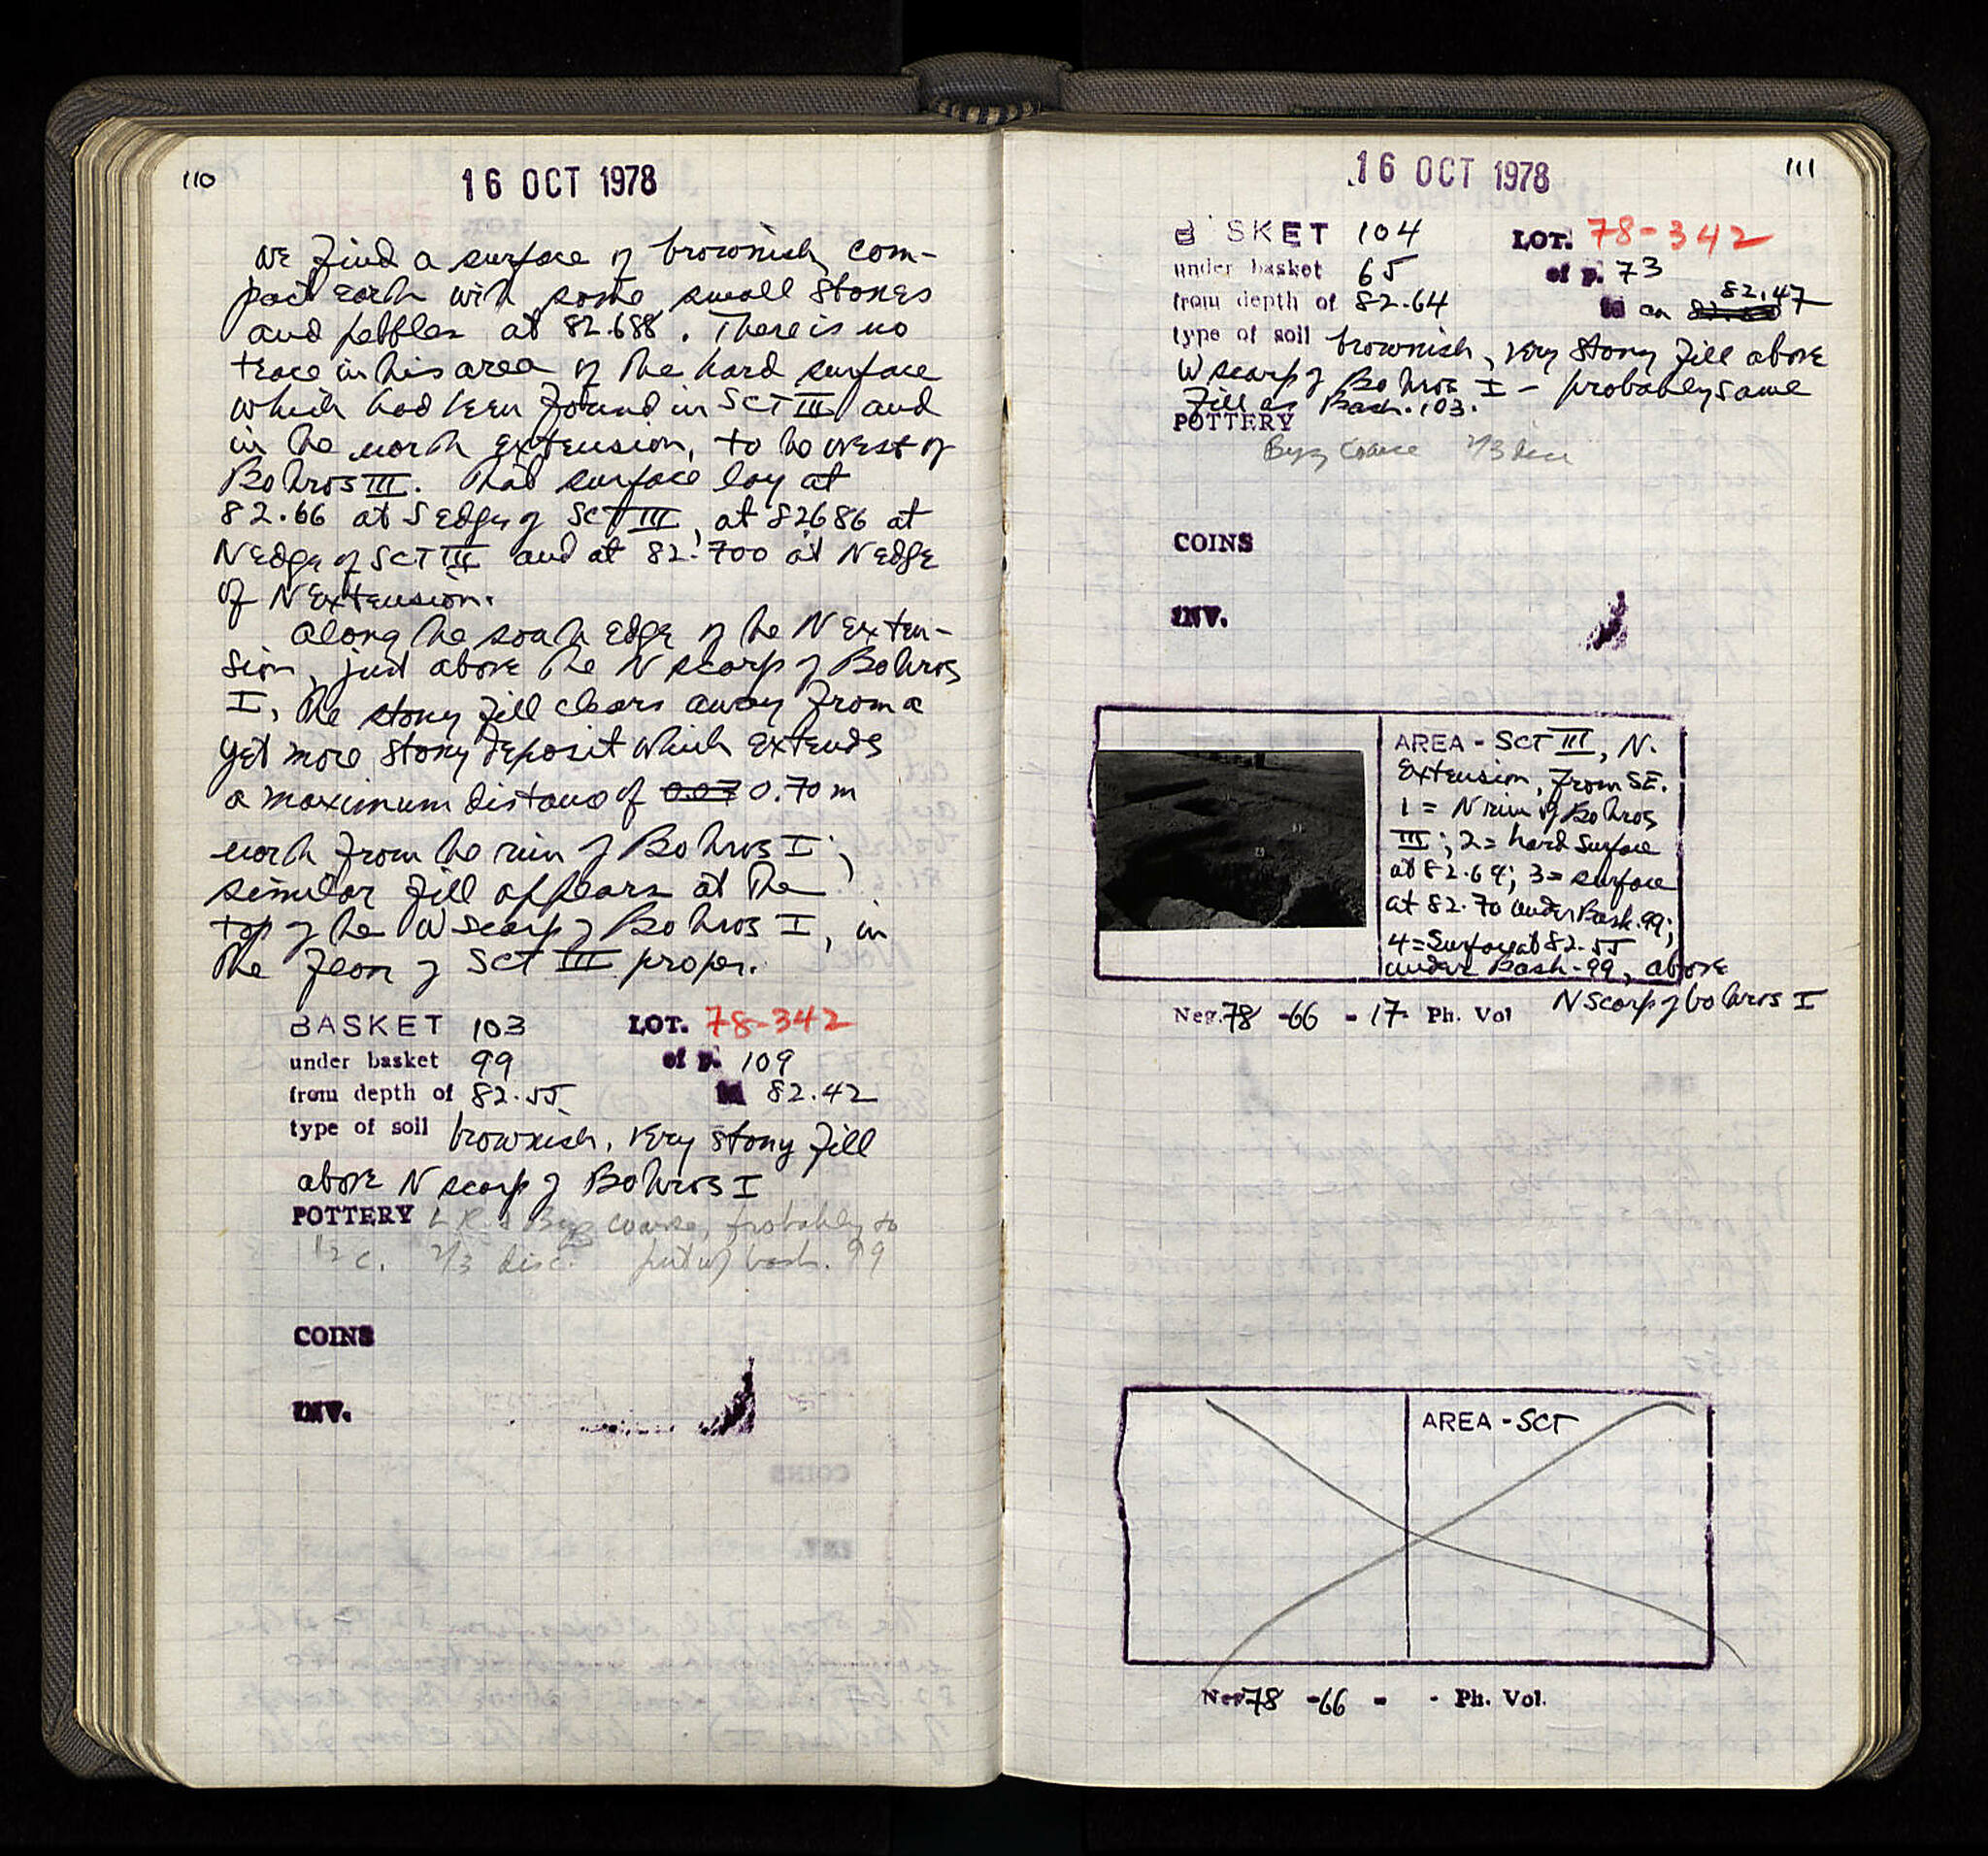 110
16 OCT 1978
we find a surface of brownish, com-
pact earth with some small stones
and pebbles at 82.688. There is no
trace in this area of the hard surface
which had been found in SCT III and
in the north extension, to the west of
Bothros III. That surface lay at
82.66 at S edge of SCT III, at 82.686 at
N edge of SCT III and at 82.700 at N edge
of N Extension.
Along the south edge of the N exten-
sion, just above the N scarp of Bothros
I, the stony fill clears away from a
yet more stony deposit which extends
a maximum distance of 0.07 0.70 m
north from the rim of Bothros I;
similar fill appears at the
top of the W scarp of Bothros I, in
the floor of SCT III proper.
BASKET 103 LOT. 78-342
under basket 99 of p. 109
from depth of 82.55 to 82.42
type of soil brownish, very stony fill
above N scarp of Bothros I
POTTERY L.R. & Byz coarse, probably to
12 c. 2/3 disc. put w/ bask. 99
COINS
INV.
16 OCT 1978
111
BASKET 104 LOT. 78-342
under basket 65 of p. 73
from depth of 82.64 to ca 82.47
type of soil brownish, very stony fill above
W scarp of Bothros I - probably same
fill as Bask. 103.
POTTERY
Byz coarse 2/3 disc
COINS
INV.
AREA - SCT III, N.
Extension, from SE.
1 = N rim of Bothros
III; 2 = hard surface
at 82.69; 3 = surface
at 82.70 under Bask. 99;
4 = Surface at 82.55
under Bask. 99, above
N scarp of bothros I
Neg. 78 - 66 - 17 Ph. Vol
AREA - SCT
Neg. 78 - 66 - - Ph. Vol.